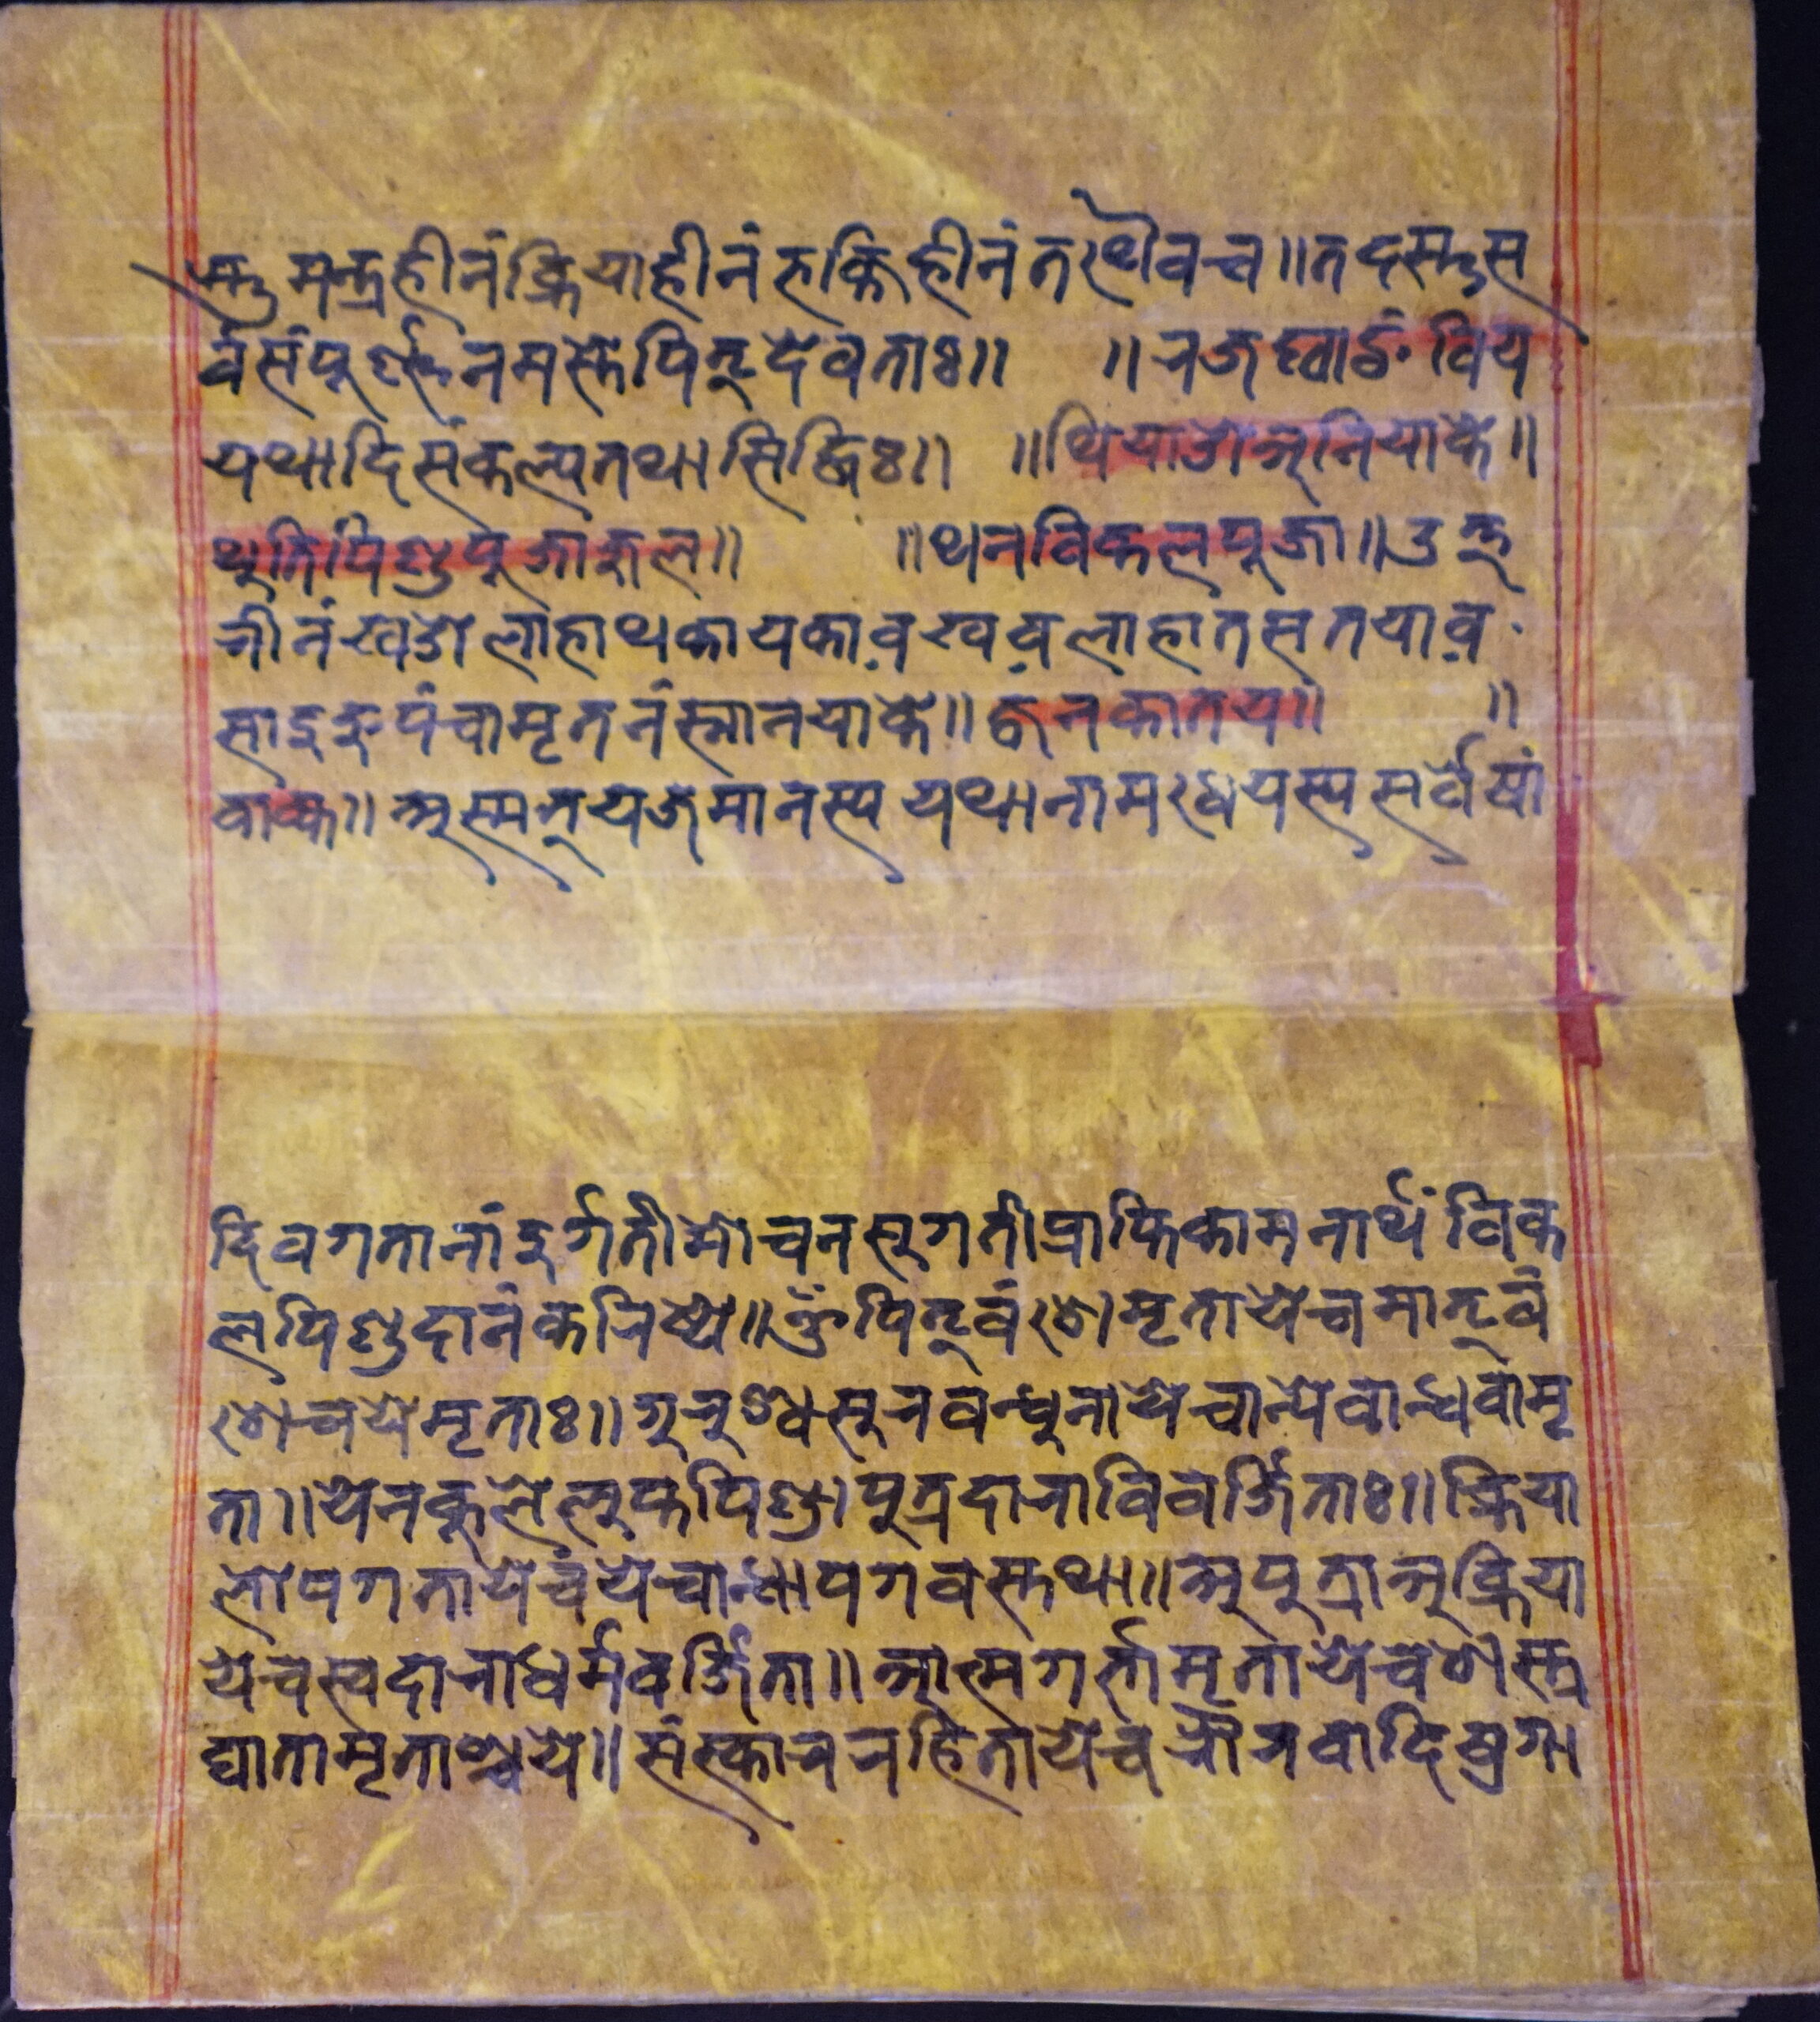 स्तु मन्त्रहीनं क्रियाहीनं भक्तिहीनं तथैवच॥ तदस्तु स
र्वसंपूर्ण्णं नमस्ते पितृदेवताः॥ ॥
यथादि संकल्प तथा सिद्धिः॥ ॥ थियाङोअनियाके॥
थुति पिण्डपूजा जुल॥ ॥ थन विकलपूजा॥
लाहाथ काय काव़ खव़ लाहातस तयाव़
साइदुरु पंचामृतनं स्नान याके॥ जनकातय॥ ॥
वाक्य॥ अस्मत् यजमानस्य यथानामधेयस्य सर्वेषां
दिवगतानां दुर्गतीमोचन सुगतीप्राप्तिकामनार्थं विक
लपिण्डदानं करिष्ये॥ ॐ पितृवंशे मृता येच मातृवं
शेचये मृताः॥ गुरुश्वसुरबन्धुना येचान्ये वान्धवा मृ
ता॥ येनकुले लुप्तपिण्डा पुत्रदारा विवर्जिताः॥ क्रिया
लोपगता येचं येचान्धा पगवस्तथा॥ अपुत्रा अक्रिया
येच स्वदारा धर्मवर्जिता॥ आत्मगर्भा मृता येच शस्त्र
घाता मृताश्चये॥ संस्काररहिता येच रौरवादिषुगा